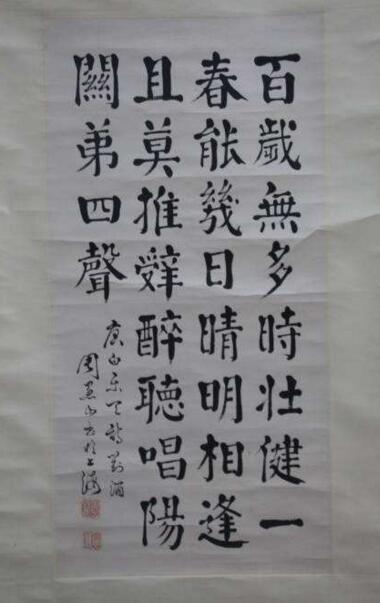 百歲無多時壯健一
春能幾日晴明相逢
且莫推辤醉聽唱陽
關弟四聲
唐白乐天詩對酒
周
书於上海